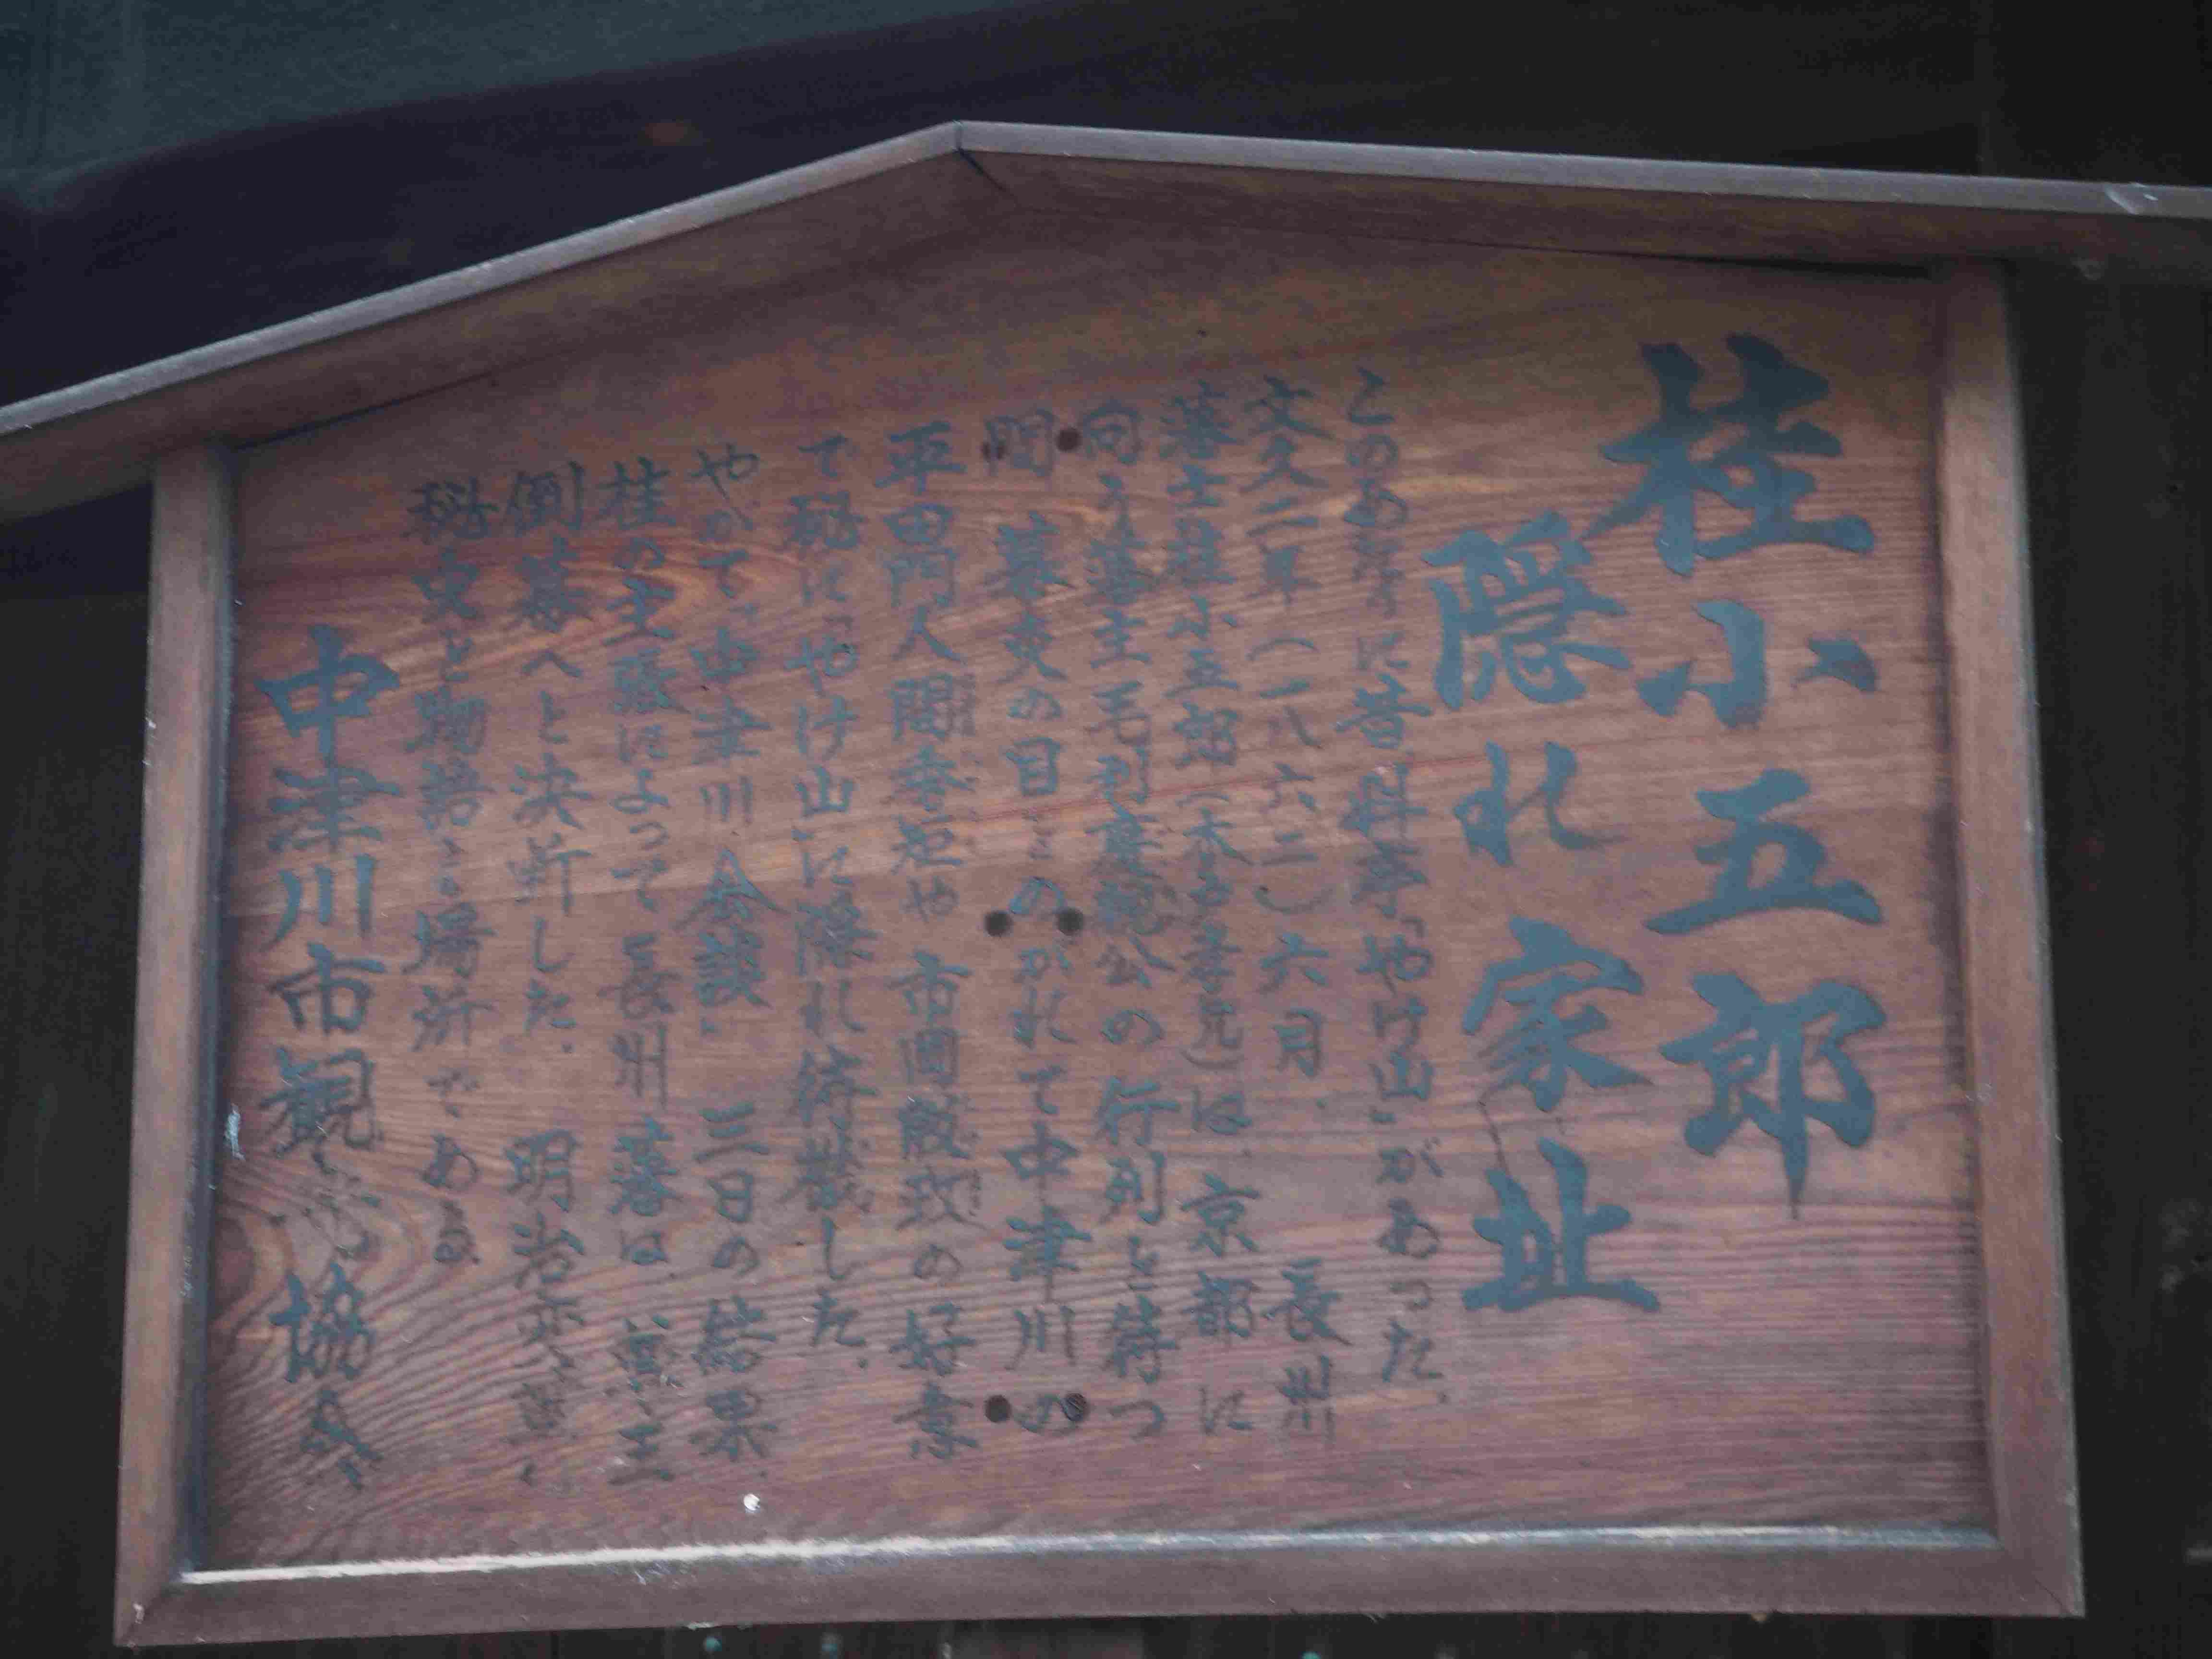 桂小五郎
隠れ家址
このあたりに昔料亭「やけ山」があった。
文久二年(一八六二)六月、長州
藩士桂小五郎(木戸孝允)は、京都に
向う藩主毛利慶親公の行列を待つ
間、幕吏の目をのがれて中津川の
平田門人間秀矩や市岡殷政の好意
で秘に「やけ山」に隠れ待機した。
やがて「中津川会談」三日の結果、
桂の主張によって長州藩は、尊王
倒幕へと決断した。明治
秘史を物語る場所である。
中津川市観光協会